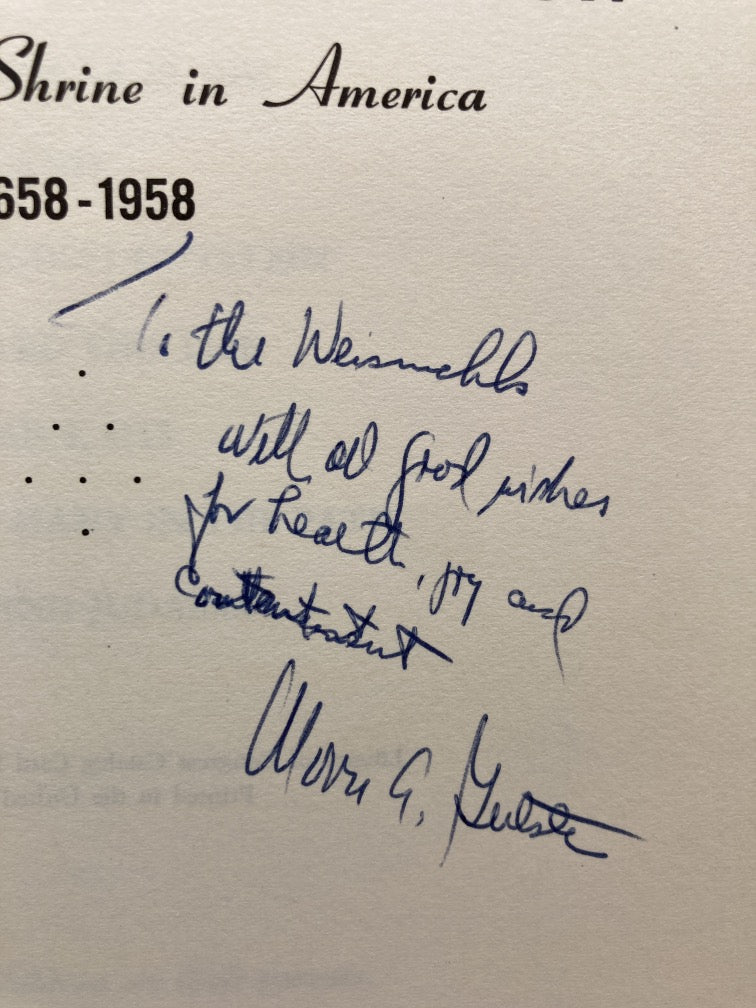 Shrine in America
658-1958
To the Weismehls
with all good wishes
for health, joy and
contentment
Morris A. Gutstein